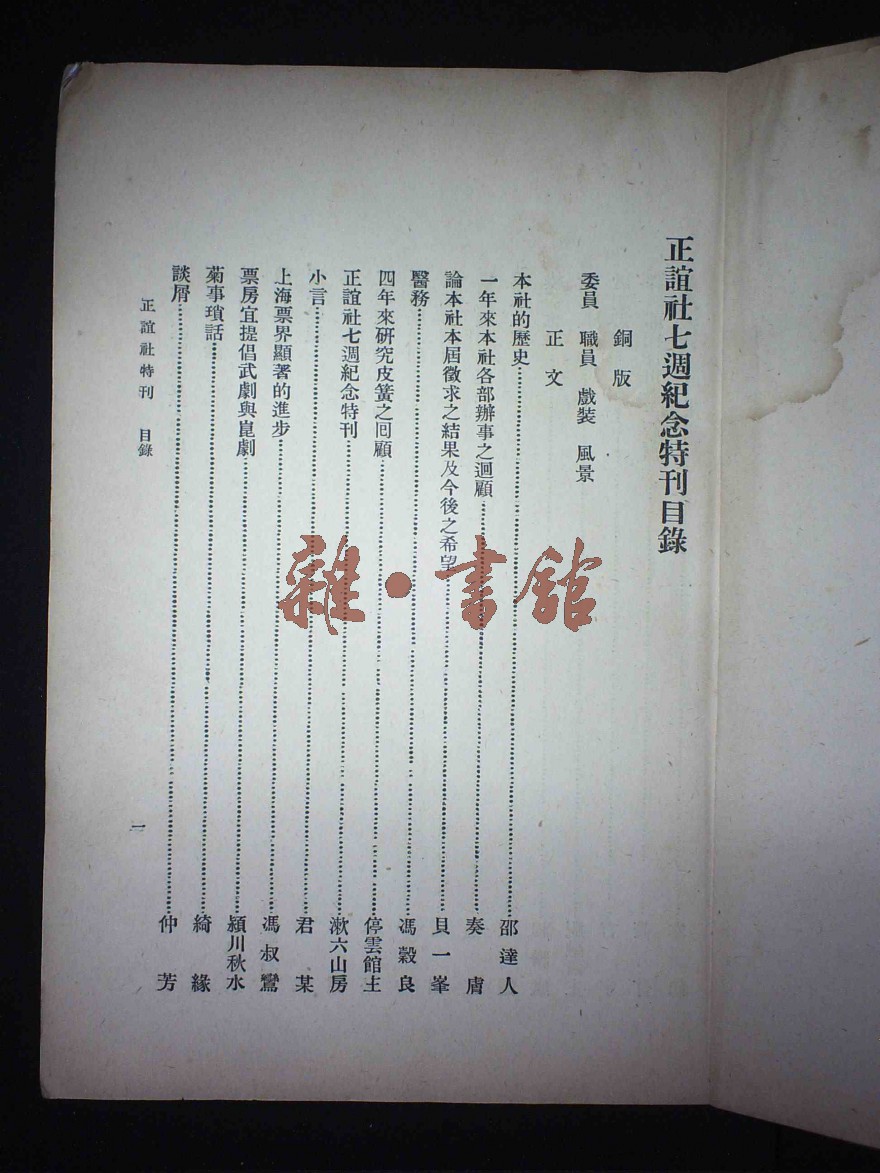 正誼社七週紀念特刊目錄
銅版
委員 職員 戲裝 風景
正文
本社的歷史……邵達人
一年來本社各部辦事之迴顧……奏膚
論本社本屆徵求之結果及今後之希望……貝一峯
醫務……馮穀良
四年來研究皮簧之回顧……停雲館主
正誼社七週紀念特刊……漱六山房
小言……君某
上海票界顯著的進步……馮叔鸞
票房宜提倡武劇與崑劇……潁川秋水
菊事瑣話……綺緣
談屑……仲芳
正誼社特刊 目錄
一
雜·書館